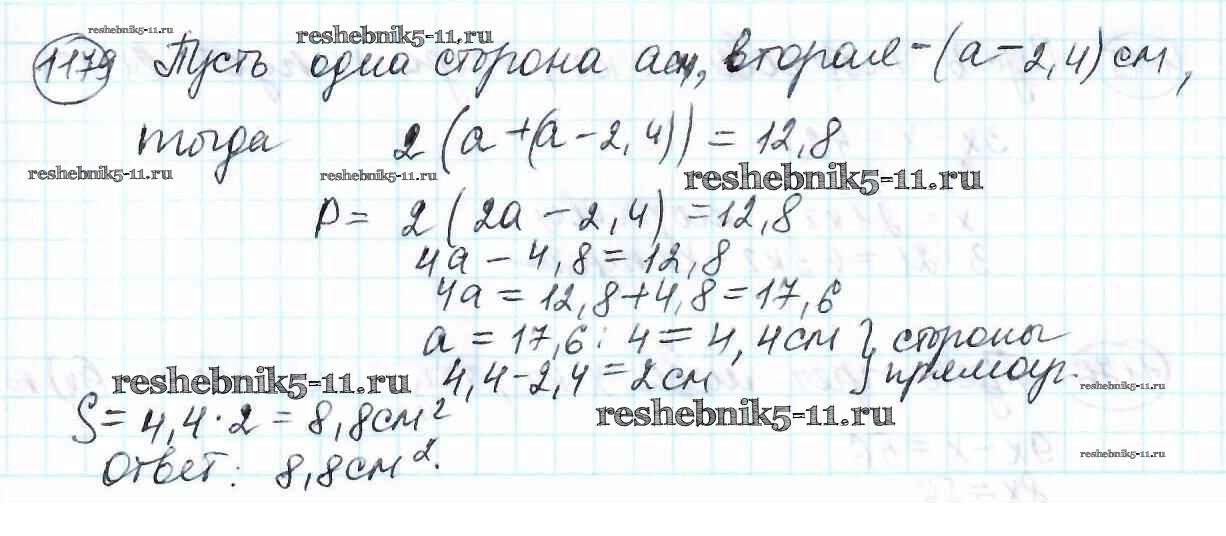 reshebnik5-11.ru reshebnik5-11.ru
1179 Пусть одна сторона a см, вторая - (a - 2,4) см,
тогда 2(a+(a-2,4)) = 12,8
reshebnik5-11.ru reshebnik5-11.ru reshebnik5-11.ru
P = 2(2a - 2,4) = 12,8
4a - 4,8 = 12,8
4a = 12,8+4,8 = 17,6
a = 17,6 : 4 = 4,4 см } стороны
reshebnik5-11.ru 4,4-2,4 = 2 см } прямоуг. reshebnik5-11.ru
S = 4,4 · 2 = 8,8 см² reshebnik5-11.ru
Ответ: 8,8 см². reshebnik5-11.ru